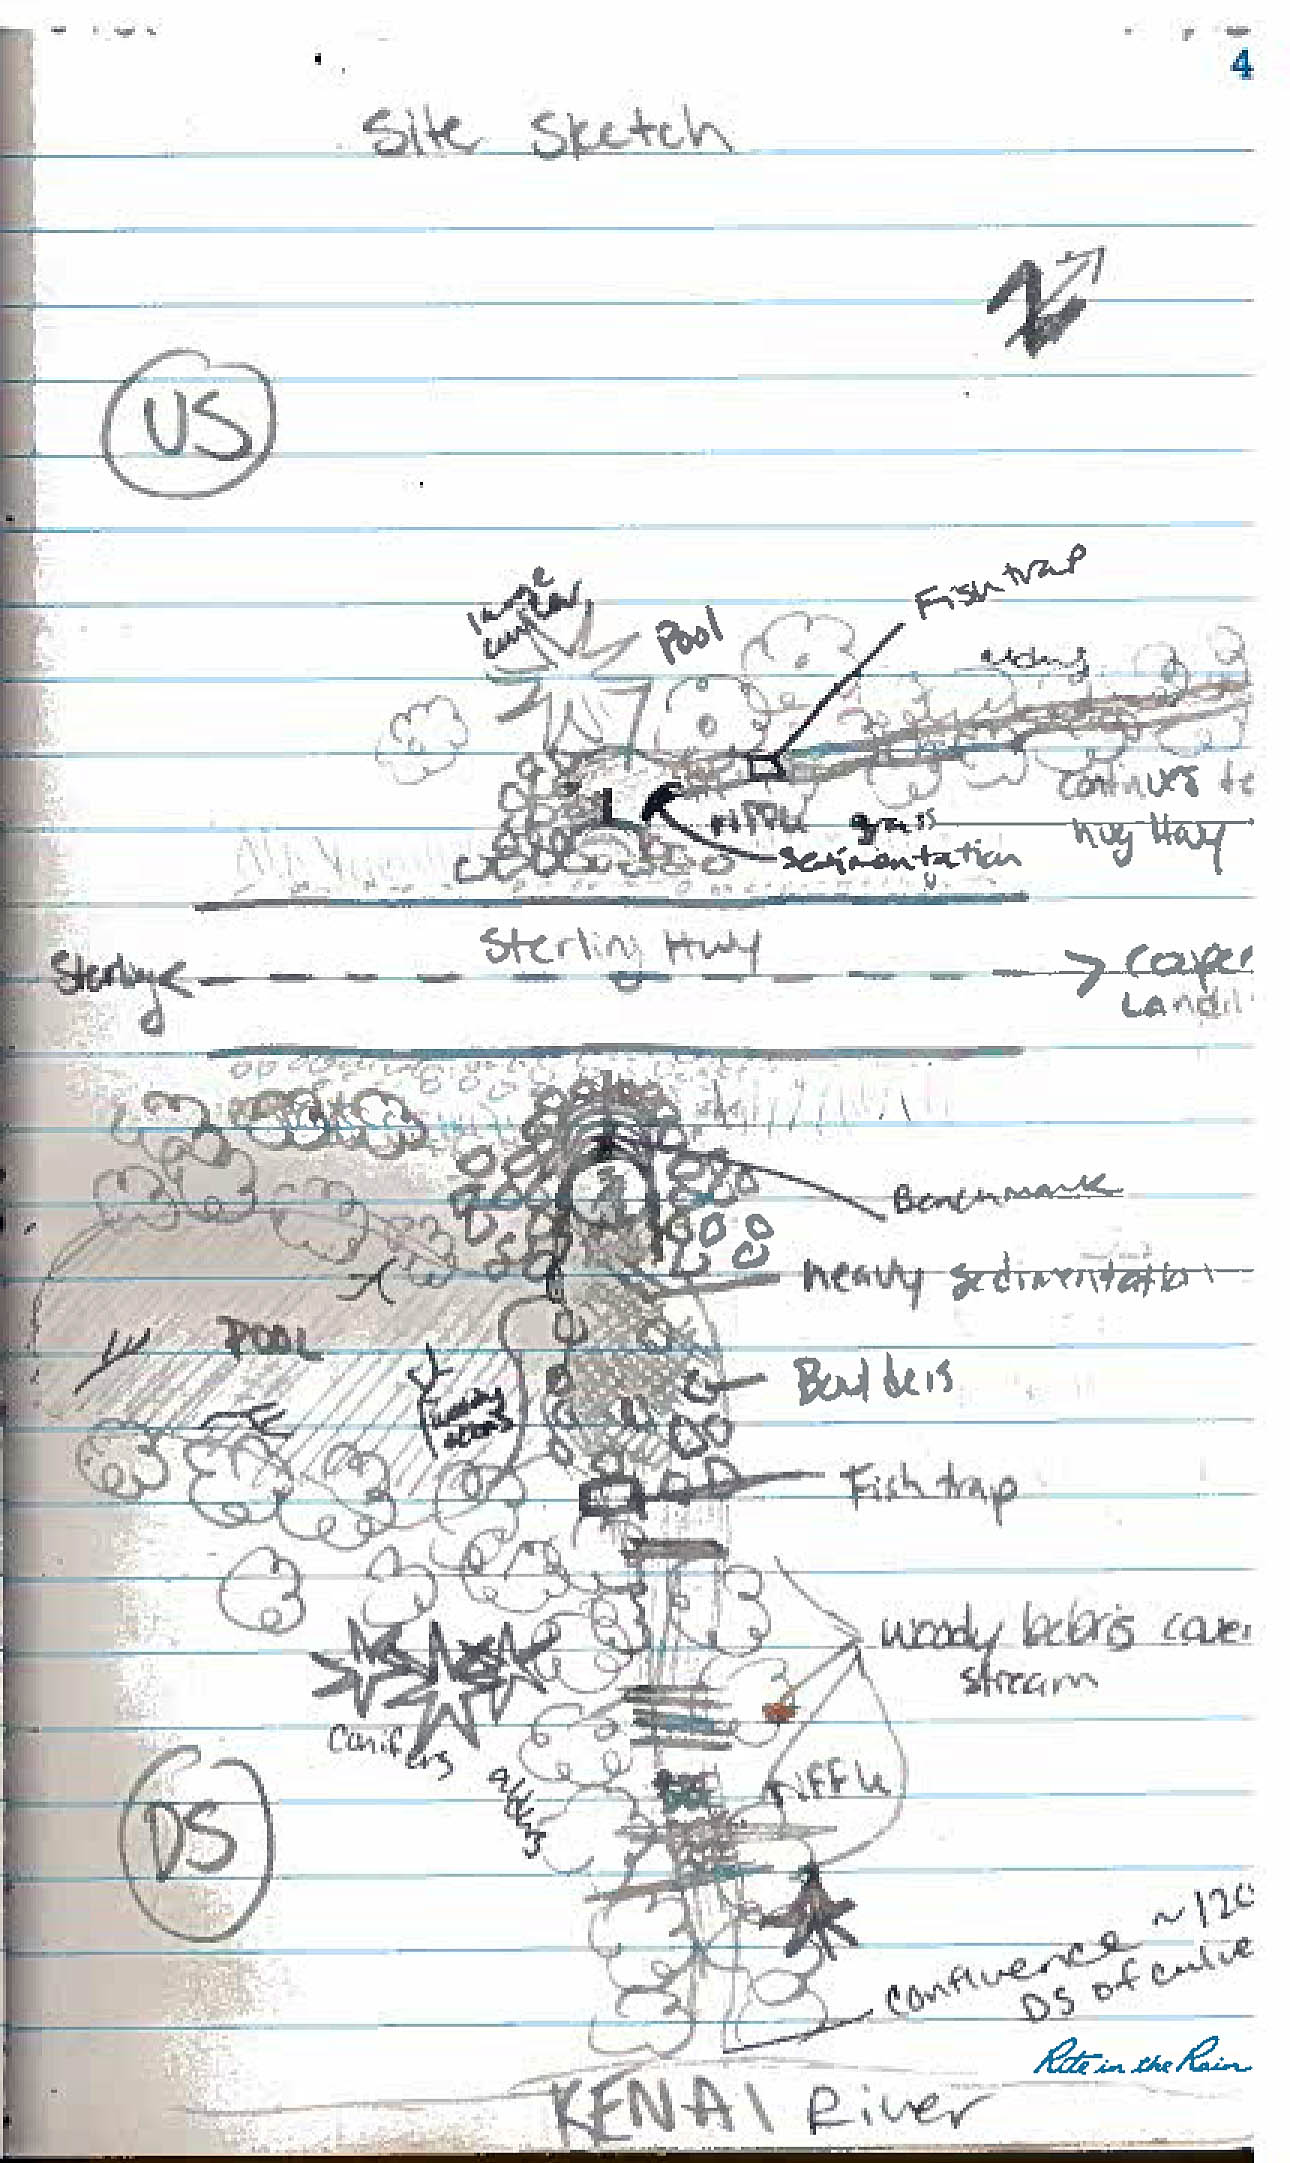 4
Site Sketch
N
US
Fish trap
large
conifer
Pool
alders
continues to
riffle grass
hug Hwy
Sedimentation
Sterling Hwy
Sterling
Cooper
Landi
Benchmark
heavy sedimentation
POOL
Boulders
Fish trap
woody debris cover
stream
Conifers
riffle
alders
DS
Confluence ~120
DS of culve
Rite in the Rain
KENAI River